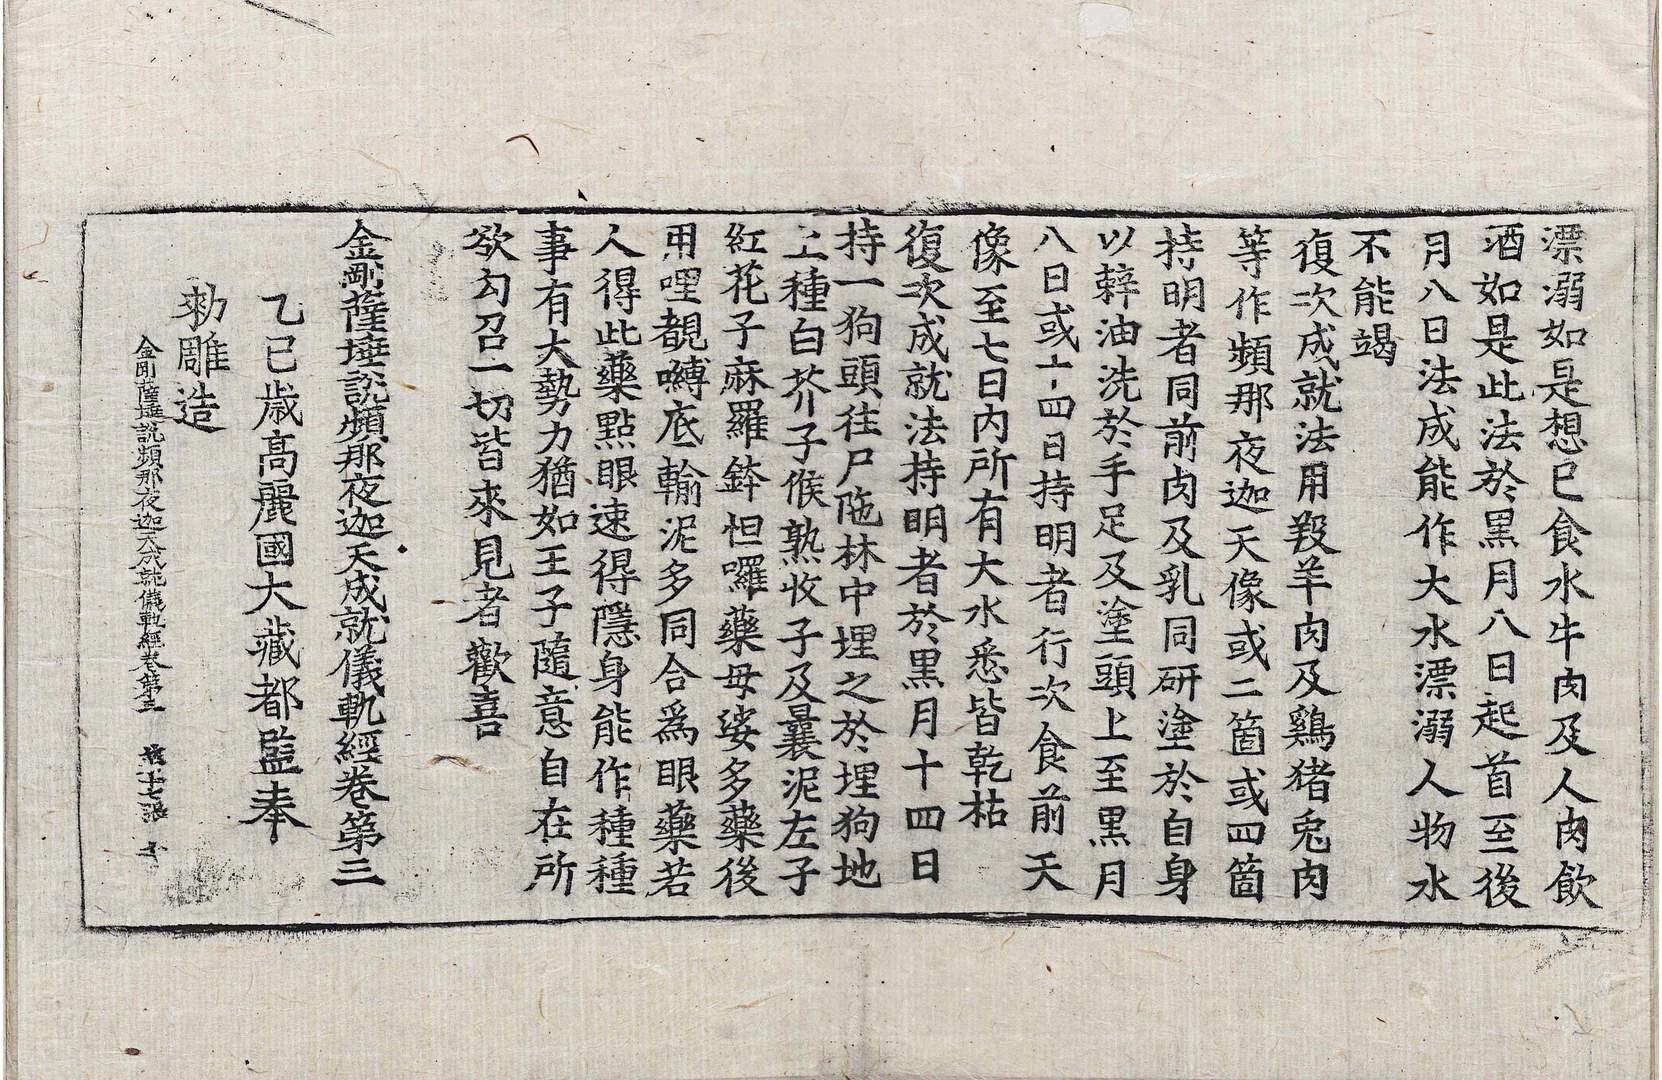 漂溺如是想已食水牛肉及人肉飲
酒如是此法於黑月八日起首至後
月八日法成能作大水漂溺人物水
不能竭
復次成就法用羖羊肉及鷄猪兎肉
等作頻那夜迦天像或二箇或四箇
持明者同前肉及乳同研塗於自身
以辢油洗於手足及塗頭上至黑月
八日或十四日持明者行次食前天
像至七日內所有大水悉皆乾枯
復次成就法持明者於黑月十四日
持一狗頭往尸陁林中埋之於埋狗地
上種白芥子候熟收子及曩泥左子
紅花子麻羅鉢怛囉藥母娑多藥後
用哩覩嚩底輸泥多同合爲眼藥若
人得此藥點眼速得隱身能作種種
事有大勢力猶如王子隨意自在所
欲勾召一切皆來見者歡喜
金剛薩埵說頻那夜迦天成就儀軌經卷第三
乙巳歳高麗國大藏都監奉
勑雕造
金剛薩埵說頻那夜迦天成就儀軌經卷第三 第十七張